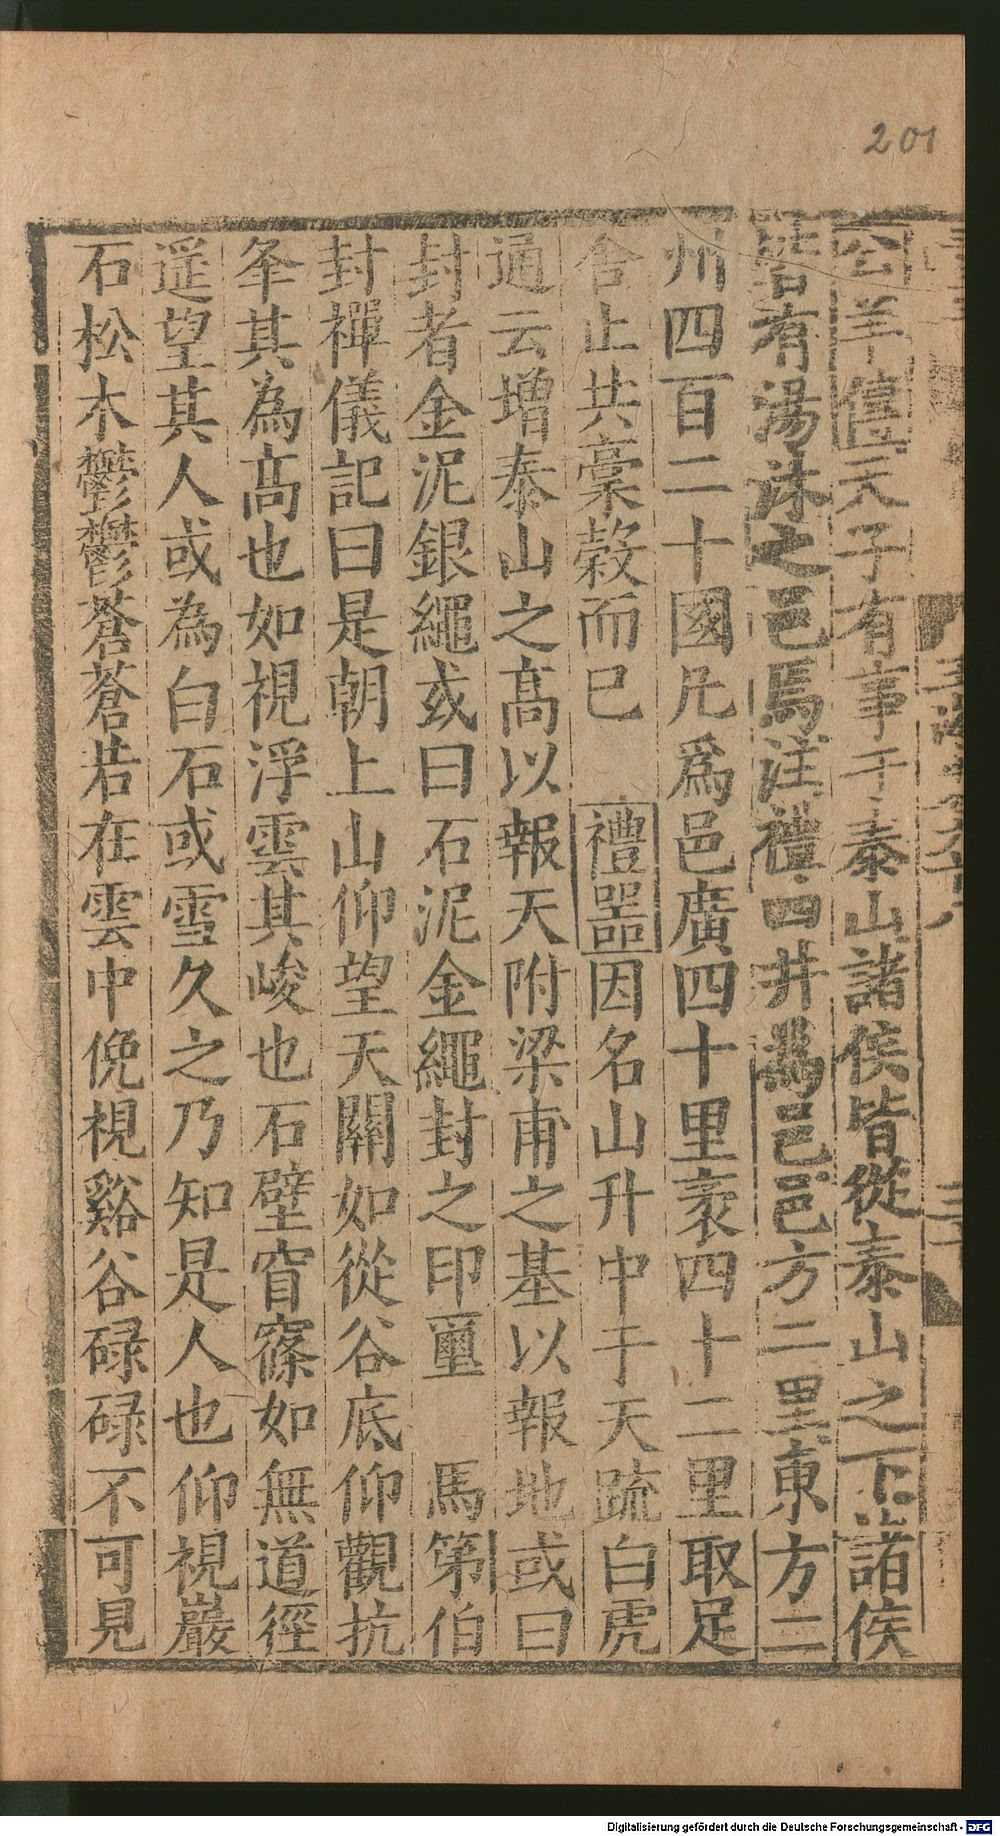 201
公羊僖天子有事于泰山諸侯皆從泰山之下諸侯
皆有湯沐之邑焉注禮四井爲邑邑方二里東方二
州四百二十國凡爲邑廣四十里袤四十二里取足
舍止共稾穀而已　禮器因名山升中于天疏白虎
通云增泰山之高以報天附梁甫之基以報地或曰
封者金泥銀繩或曰石泥金繩封之印璽　馬第伯
封禪儀記曰是朝上山仰望天關如從谷底仰觀抗
峯其為高也如視浮雲其峻也石壁窅窱如無道徑
遥望其人或為白石或雪久之乃知是人也仰視巖
石松木鬱鬱蒼蒼若在雲中俛視谿谷碌碌不可見
Digitalisierung gefördert durch die Deutsche Forschungsgemeinschaft - DFG